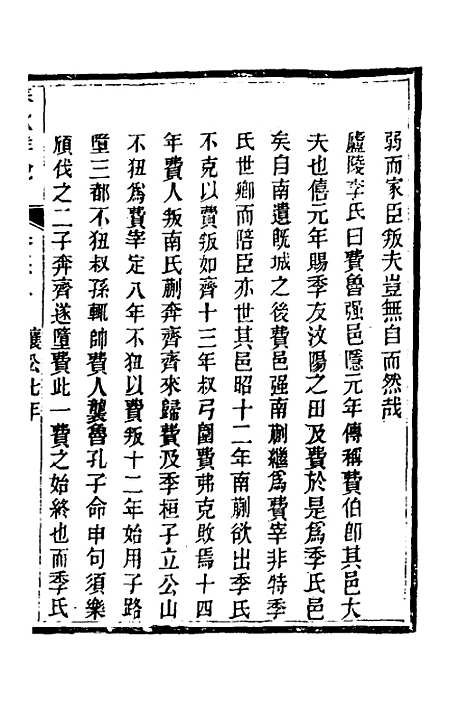 弱而家臣叛夫豈無自而然哉
廬陵李氏曰費魯强邑隱元年傳稱費伯卽其邑大
夫也僖元年賜季友汶陽之田及費於是爲季氏邑
矣自南遺旣城之後費邑强南蒯繼爲費宰非特季
氏世卿而陪臣亦世其邑昭十二年南蒯欲出季氏
不克以費叛如齊十三年叔弓圍費弗克敗焉十四
年費人叛南氏蒯奔齊齊來歸費及季桓子立公山
不狃爲費宰定八年不狃以費叛十二年始用子路
墮三都不狃叔孫輒帥費人襲魯孔子命申句須樂
頎伐之二子奔齊遂墮費此一費之始終也而季氏
襄公七年